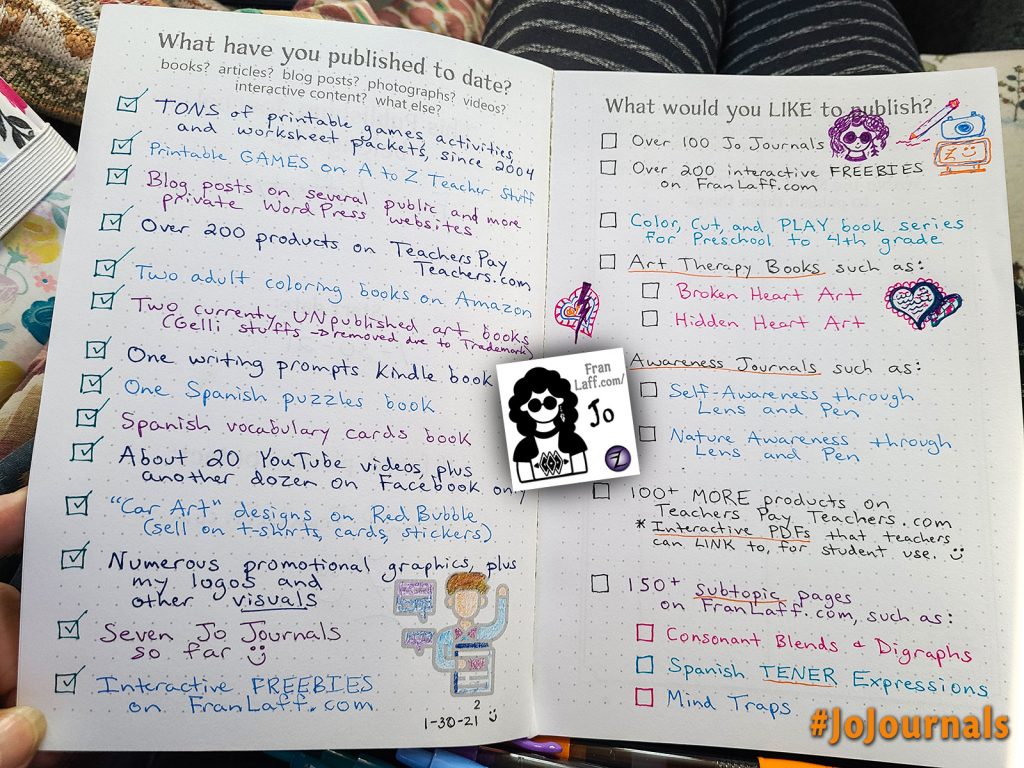 What have you published to date?
books? articles? blog posts? photographs? videos?
interactive content? what else?
TONS of printable games, activities,
and worksheet packets, since 2004
Printable GAMES on A to Z Teacher Stuff
Blog posts on several public and more
private WordPress websites
Over 200 products on Teachers Pay
Teachers.com
Two adult coloring books on Amazon
Two currenty UNpublished art books
(Gelli stuffs → removed due to Trademark)
One writing prompts Kindle book
One Spanish puzzles book
Spanish vocabulary cards book
About 20 YouTube videos, plus
another dozen on Facebook only
"Car Art" designs on Red Bubble
(sell on t-shirts, cards, stickers)
Numerous promotional graphics, plus
my logos and
other visuals
Seven Jo Journals
so far
Interactive FREEBIES
on FranLaff.com
2
1-30-21
Fran
Laff.com/
Jo
Z
What would you LIKE to publish?
Over 100 Jo Journals
Over 200 interactive FREEBIES
on FranLaff.com
Z
Color, Cut, and PLAY book series
for Preschool to 4th grade
Art Therapy Books such as:
Broken Heart Art
Hidden Heart Art
Awareness Journals such as:
Self-Awareness through
Lens and Pen
Nature Awareness through
Lens and Pen
100+ MORE products on
Teachers Pay Teachers.com
* Interactive PDFs that teachers
can LINK to, for student use.
150+ subtopic pages
on FranLaff.com, such as:
Consonant Blends & Digraphs
Spanish TENER Expressions
Mind Traps
#JoJournals